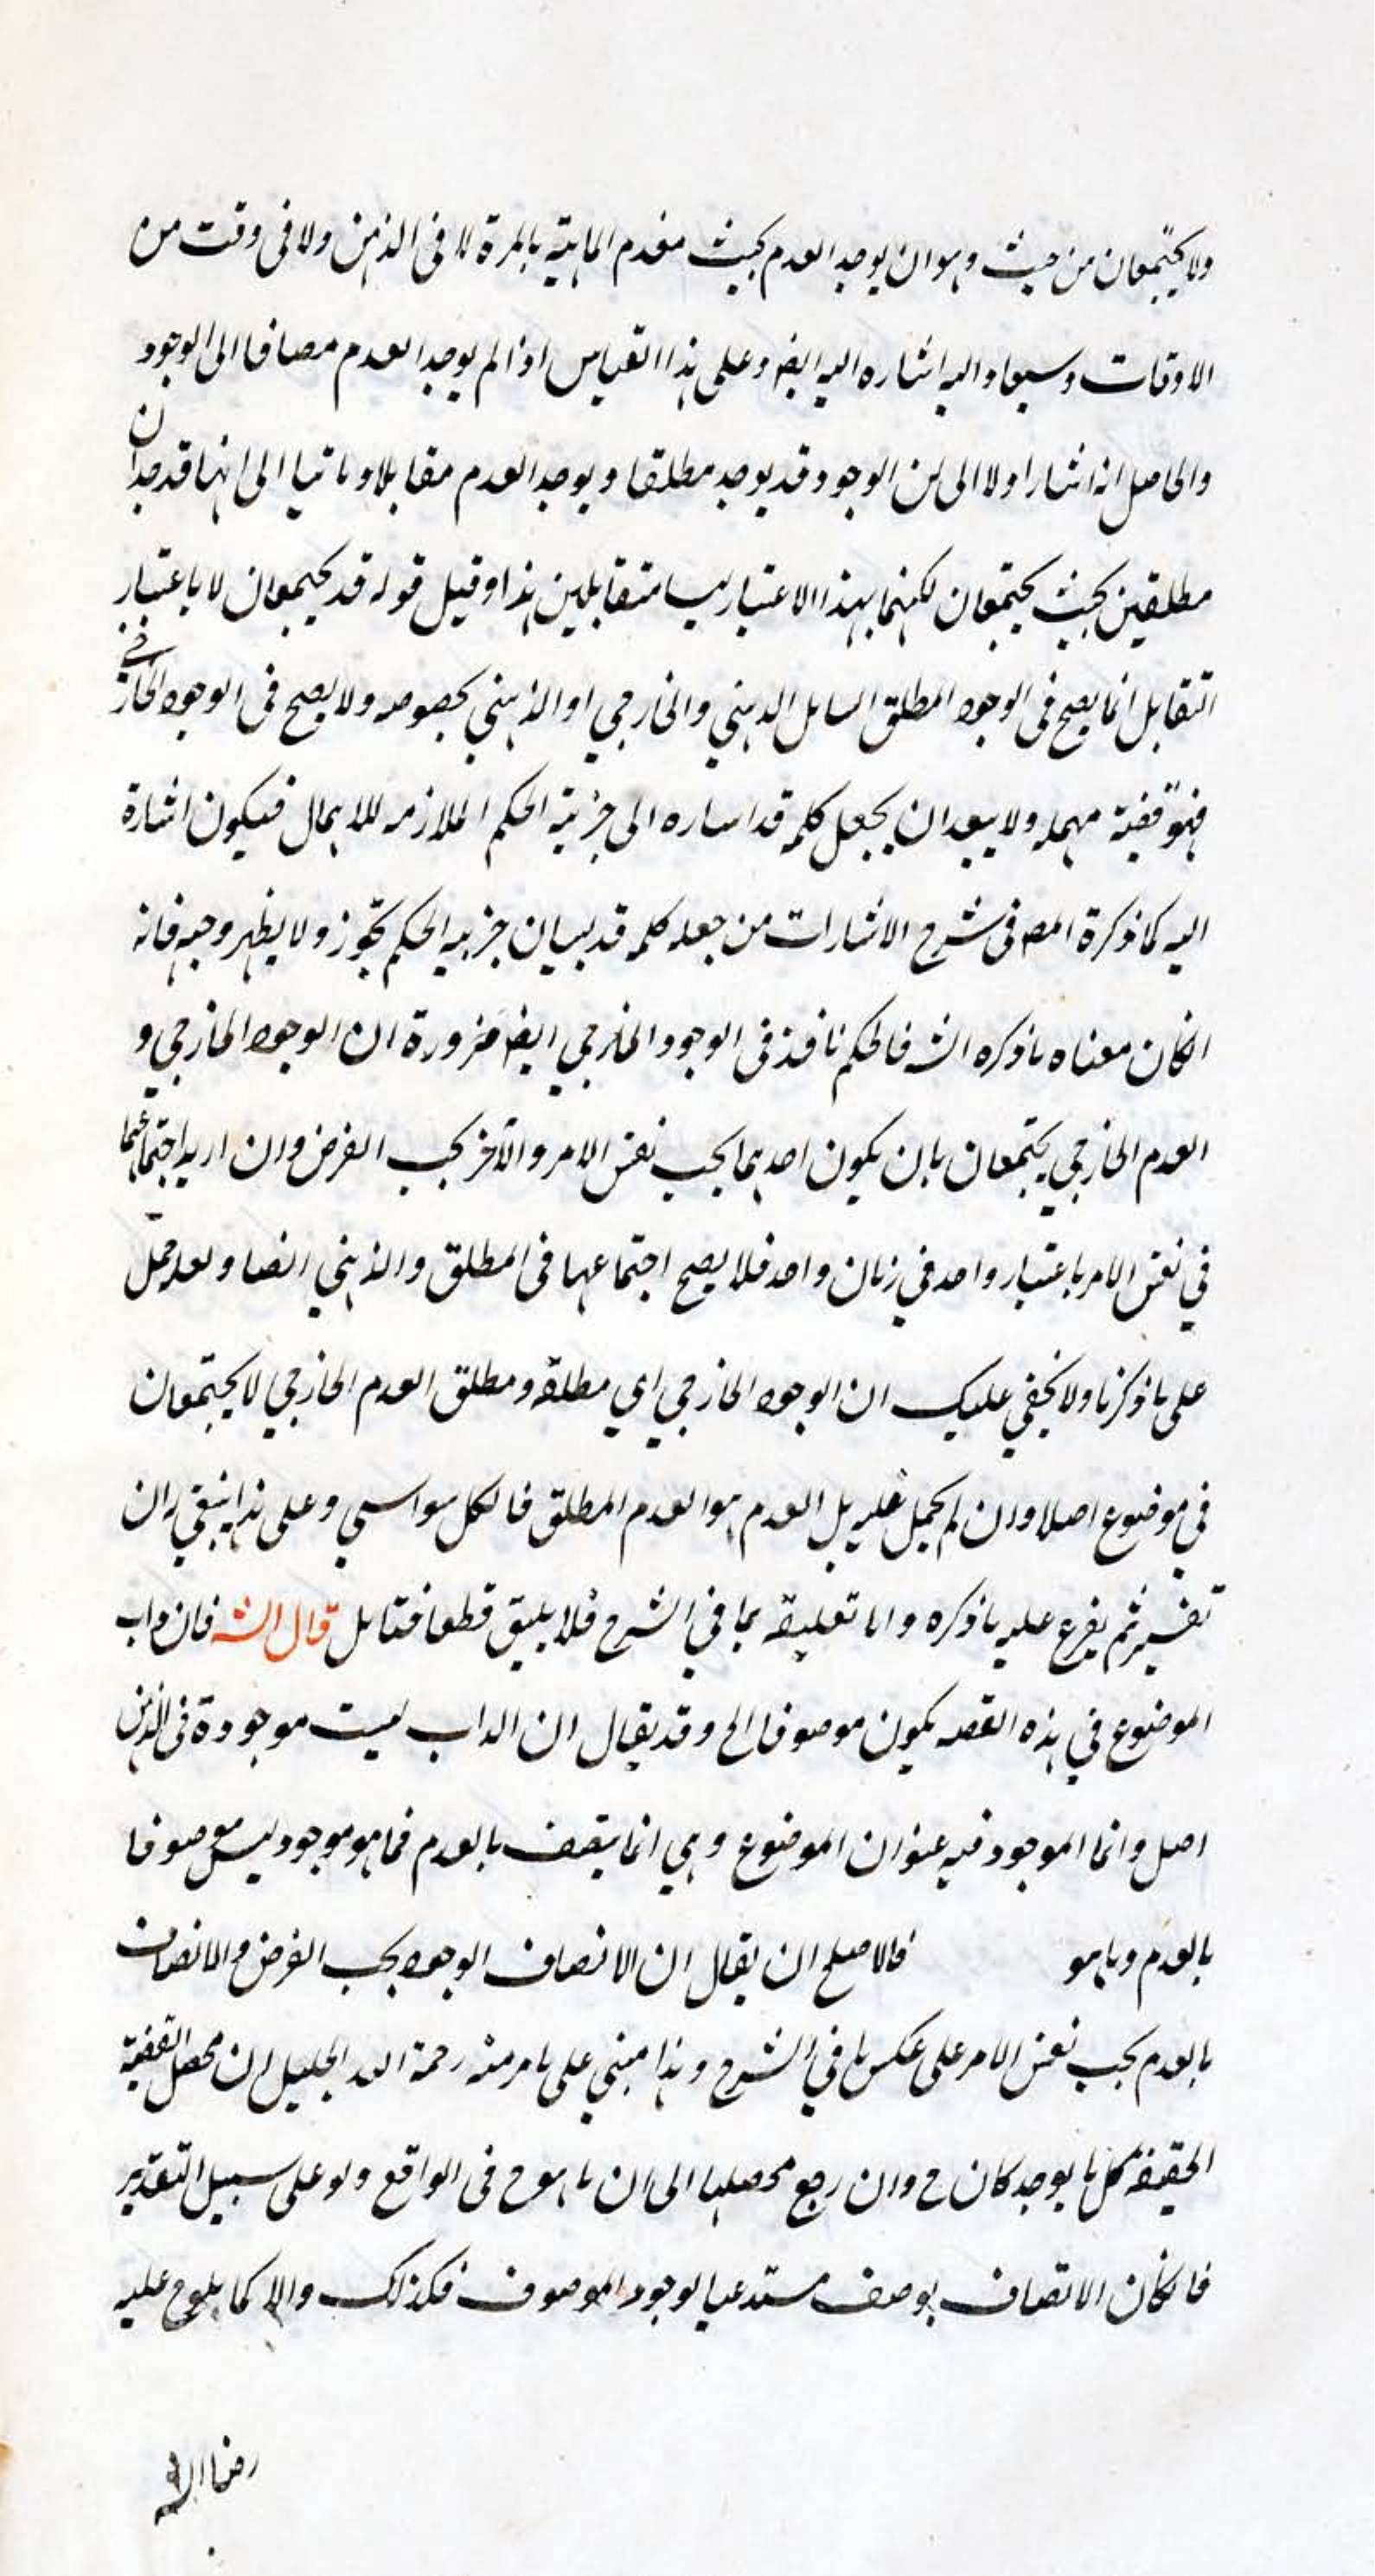 ولا يجتمعان من حيث وهو ان يوجد العدم بحيث مفدم الماهية بالمرة لا في الذهن ولا في وقت من
الاوقات وسيعاد اليه اشاره اليه ايضا وعلى هذا القياس اذا لم يوجد العدم مضافا الى الوجود
والحاصل انه اشار اولا الى ان الوجود قد يوجد مطلقا ويوجد العدم مقابلا وثانيا الى انهما قد يوجدان
مطلقين بحيث يجتمعان لكنهما بهذا الاعتبار ليسا متقابلين هذا وقيل قوله قد يجتمعان لا باعتبار
التقابل انما يصح في الوجود المطلق الشامل الذهني والخارجي او الذهني بخصوصه ولا يصح في الوجود الخارجي
فهو قضية مهمله ولا يبعد ان يجعل كلمة قد اشاره الى جزئية الحكم الملازمه للاهمال فيكون اشارة
اليه كما ذكرة المص في شرح الاشارات من جعله كلمه قد لبيان جزئيه الحكم تجوز ولا يظهر وجهه فانه
انكان معناه ما ذكره الش فالحكم نافذ في الوجود الخارجي ايضا ضرورة ان الوجود الخارجي و
العدم الخارجي يجتمعان بان يكون احدهما بحسب نفس الامر والآخر بحسب الفرض وان اريد اجتماعهما
في نفس الامر باعتبار واحد في زمان واحد فلا يصح اجتماعهما في المطلق والذهني ايضا ولعله حمل
على ما ذكرنا ولا يخفي عليك ان الوجود الخارجي اي مطلقه ومطلق العدم الخارجي لا يجتمعان
في موضوع اصلا وان لم يحمل عليه بل العدم هو العدم المطلق فالكل سواسي وعلى هذا ينبغي ان
تفسيره ثم يفرع عليه ما ذكره واما تعليقه بما في الشرح فلا يليق قطعا فتامل قال الش فان ذات
الموضوع في هذه القضيه يكون موصوفا الخ وقد يقال ان الذات ليست موجودة في الذهن
اصلا وانما الموجود فيه عنوان الموضوع وهي انما يتصف بالعدم فما هو موجود ليس موصوفا
بالعدم وما هو فالاصلح ان يقال ان الاتصاف الوجود بحسب الفرض والاتصاف
بالعدم بحسب نفس الامر على عكس ما في الشرح وهذا مبني على ما مر منه رحمة الله الجليل ان محصل القضية
الحقيقة كل ما يوجد كان ج وان رجع محصلها الى ان ما هو ج في الواقع ولو على سبيل التقدير
فالكان الاتصاف بوصف مستدعيا لوجود الموصوف فكذلك والا كما يلوح عليه